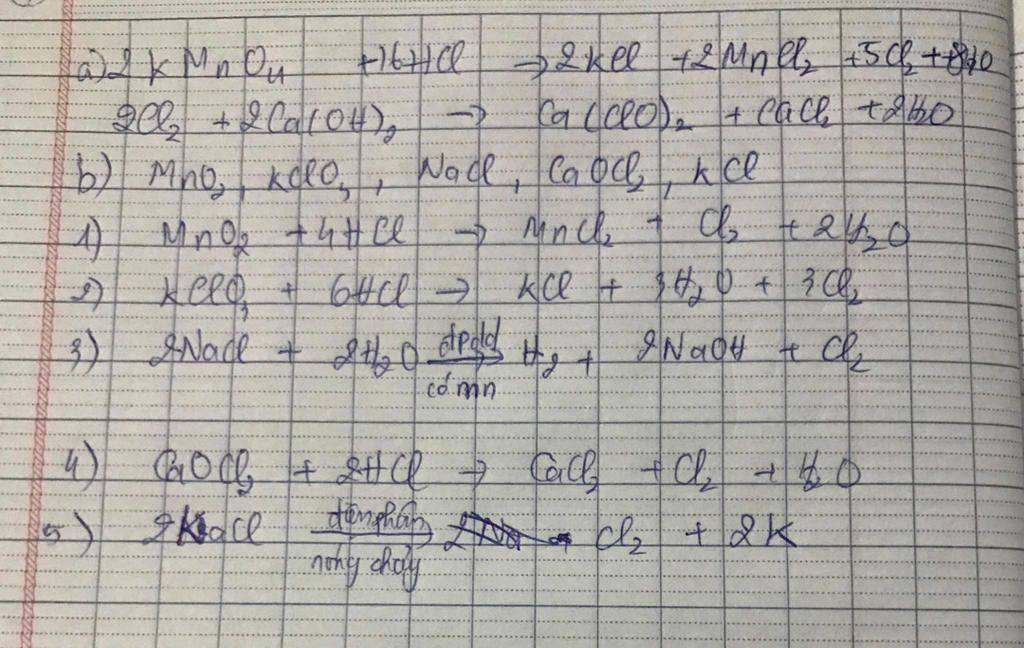 a) 2 KMnO4 + 16HCl → 2KCl + 2MnCl2 + 5Cl2 + 8H2O
2Cl2 + 2Ca(OH)2 → Ca(ClO)2 + CaCl2 + 2H2O
b) MnO2, KClO3, NaCl, CaOCl2, KCl
1) MnO2 + 4HCl → MnCl2 + Cl2 + 2H2O
2) KClO3 + 6HCl → KCl + 3H2O + 3Cl2
3) 2NaCl + 2H2O đpdd → H2 + 2NaOH + Cl2
có mn
4) CaOCl2 + 2HCl → CaCl2 + Cl2 + H2O
5) 2KCl điện phân → Cl2 + 2K
nóng chảy